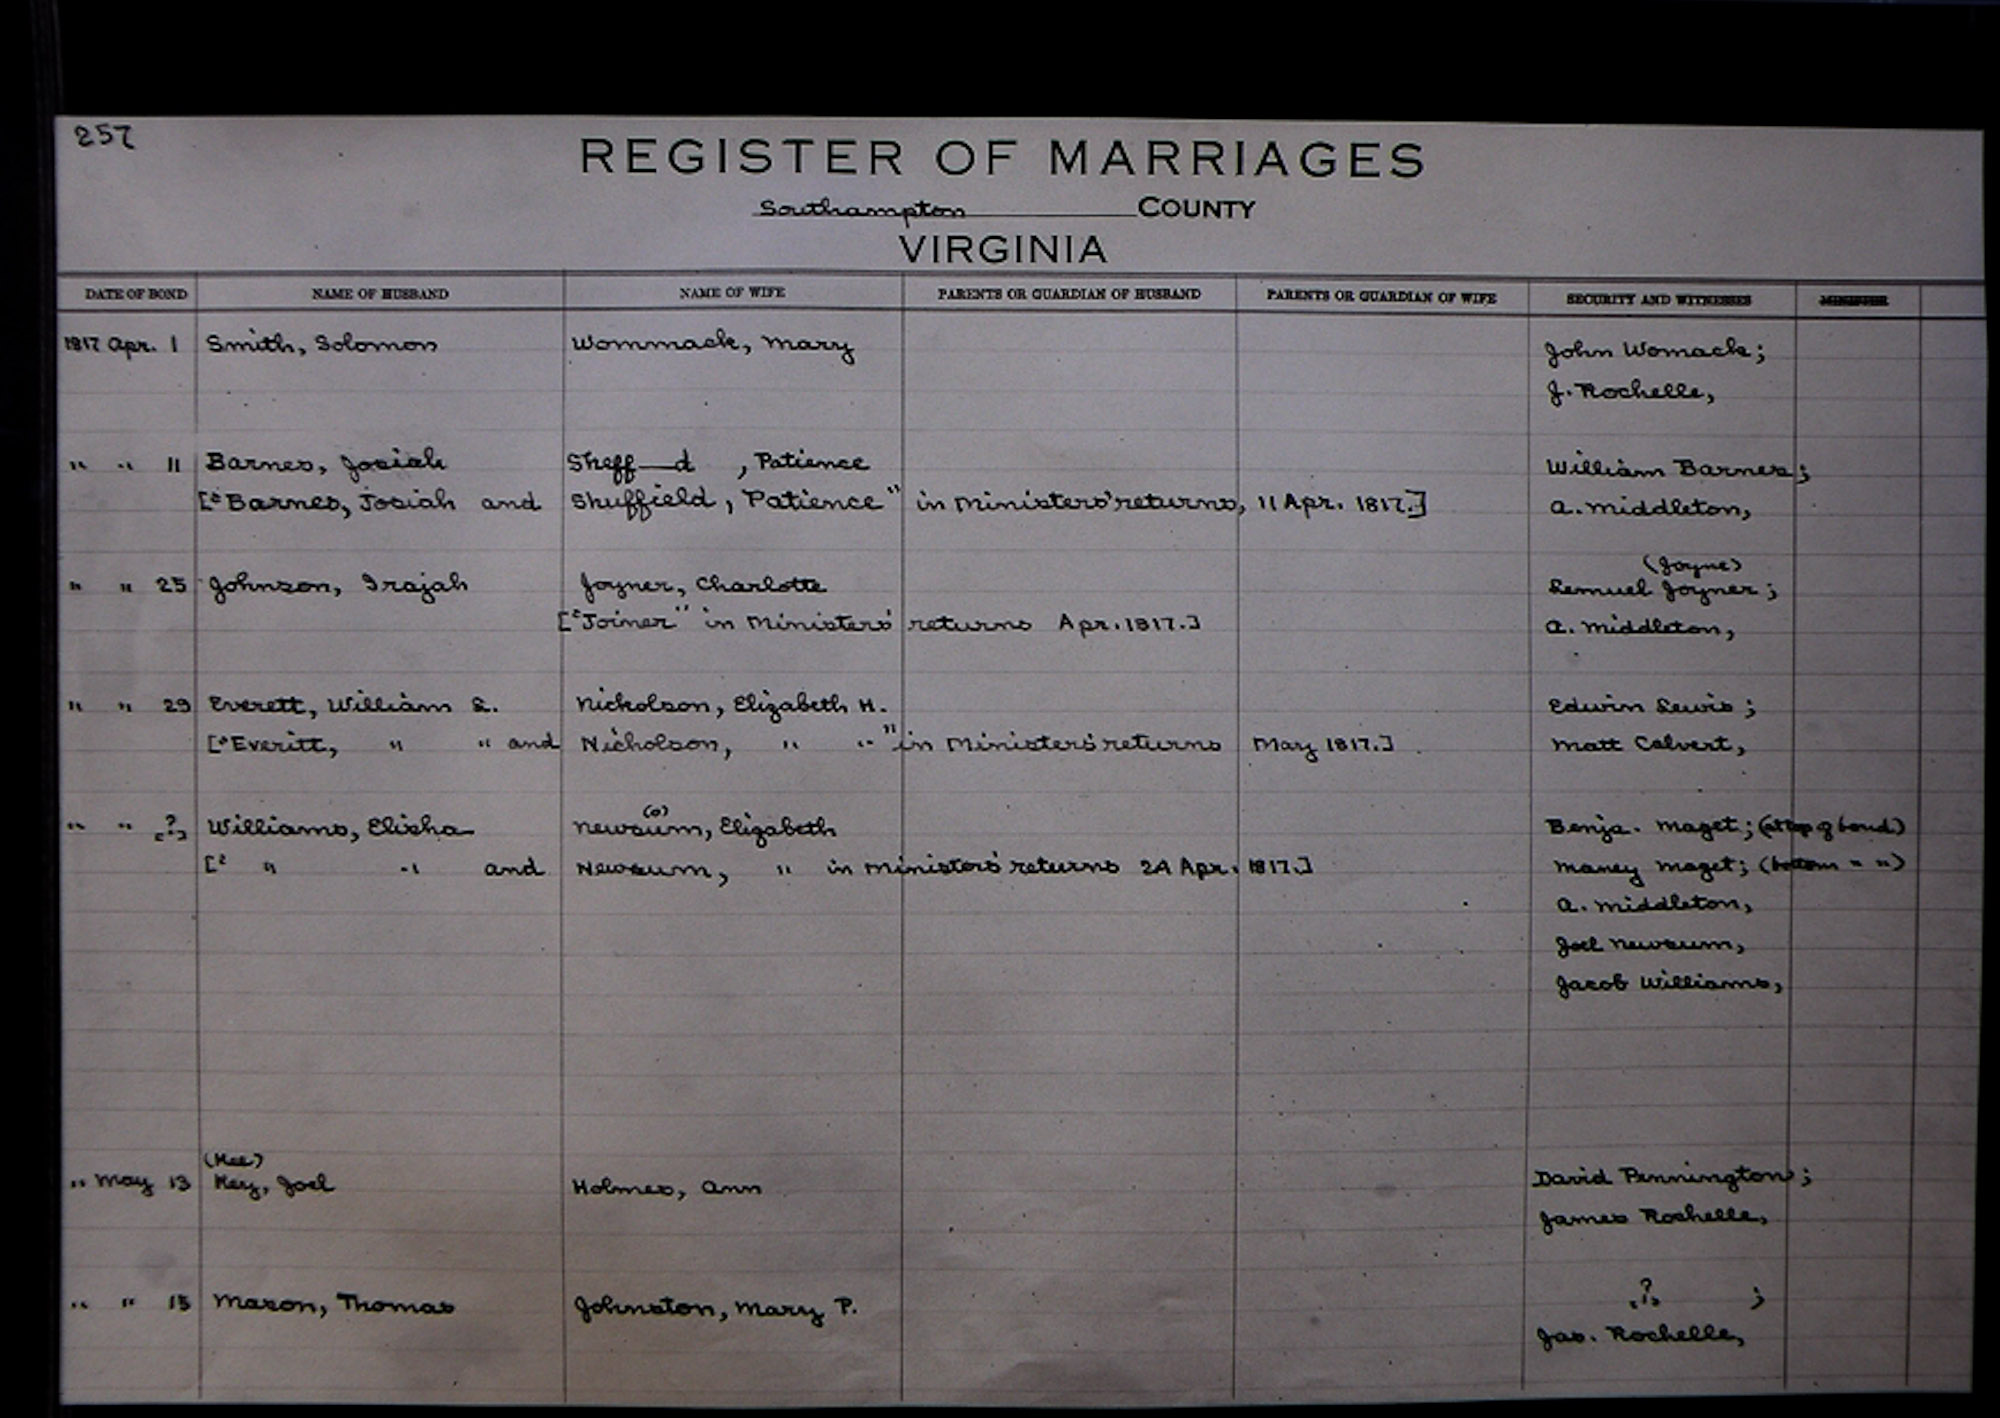 257
REGISTER OF MARRIAGES
Southampton COUNTY
VIRGINIA
DATE OF BOND NAME OF HUSBAND NAME OF WIFE PARENTS OR GUARDIAN OF HUSBAND PARENTS OR GUARDIAN OF WIFE SECURITY AND WITNESSES MINISTER
1817 Apr. 1 Smith, Solomon Wommack, Mary John Womack;
J. Rochelle,
" " 11 Barnes, Josiah Sheff—d , Patience William Barnes;
["Barnes, Josiah and Shuffield, Patience" in Ministers' returns, 11 Apr. 1817.] A. Middleton,
(Joyne)
" " 25 Johnson, Irajah Joyner, Charlotte Lemuel Joyner;
["Joiner" in Ministers' returns Apr. 1817.] A. Middleton,
" " 29 Everett, William L. Nicholson, Elizabeth H. Edwin Lewis;
["Everitt, " " and Nicholson, " " " in Ministers' returns May 1817.] Matt Calvert,
(o)
" " [?] Williams, Elisha Newsum, Elizabeth Benja. Maget; (at top of bond)
[" " " and Newsum, " in Ministers' returns 24 Apr. 1817.] Maney Maget; (bottom " ")
A. Middleton,
Joel Newsum,
Jacob Williams,
(Kee)
" May 13 Key, Joel Holmes, Ann David Pennington;
James Rochelle,
" " 15 Mason, Thomas Johnston, Mary P. [?] ;
Jas. Rochelle,